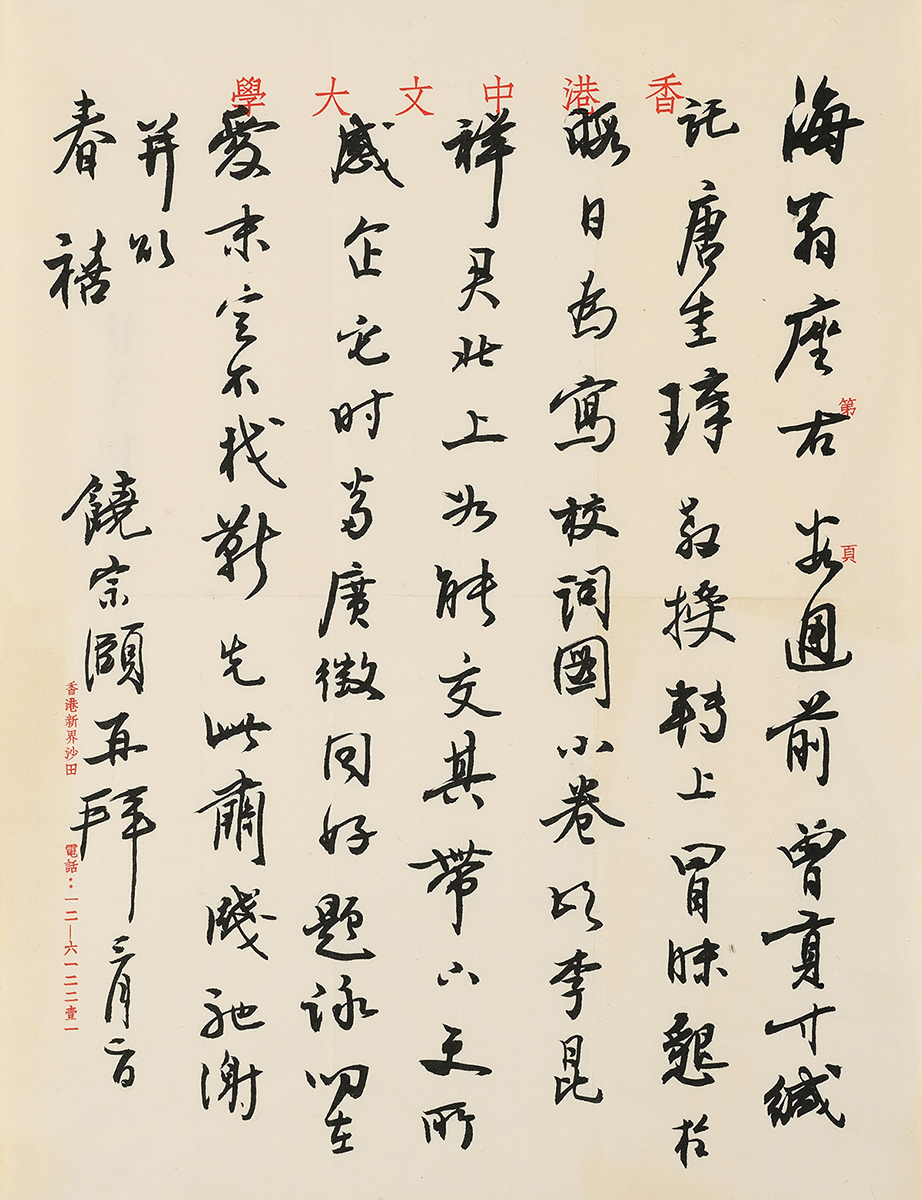 香港中文大學
第 頁
海翁座右 週前曾貢寸緘
託唐生璋教授轉上冒昧懇於
暇日為寫校詞圖小卷 李昆
祥君北上如能交其帶下更所
感企它時當廣徵同好題詠叨在
愛末定不我靳先此肅牋馳謝
并頌
春禧
饒宗頤再拜 三月二日
香港新界沙田 電話：一二—六一二二壹一